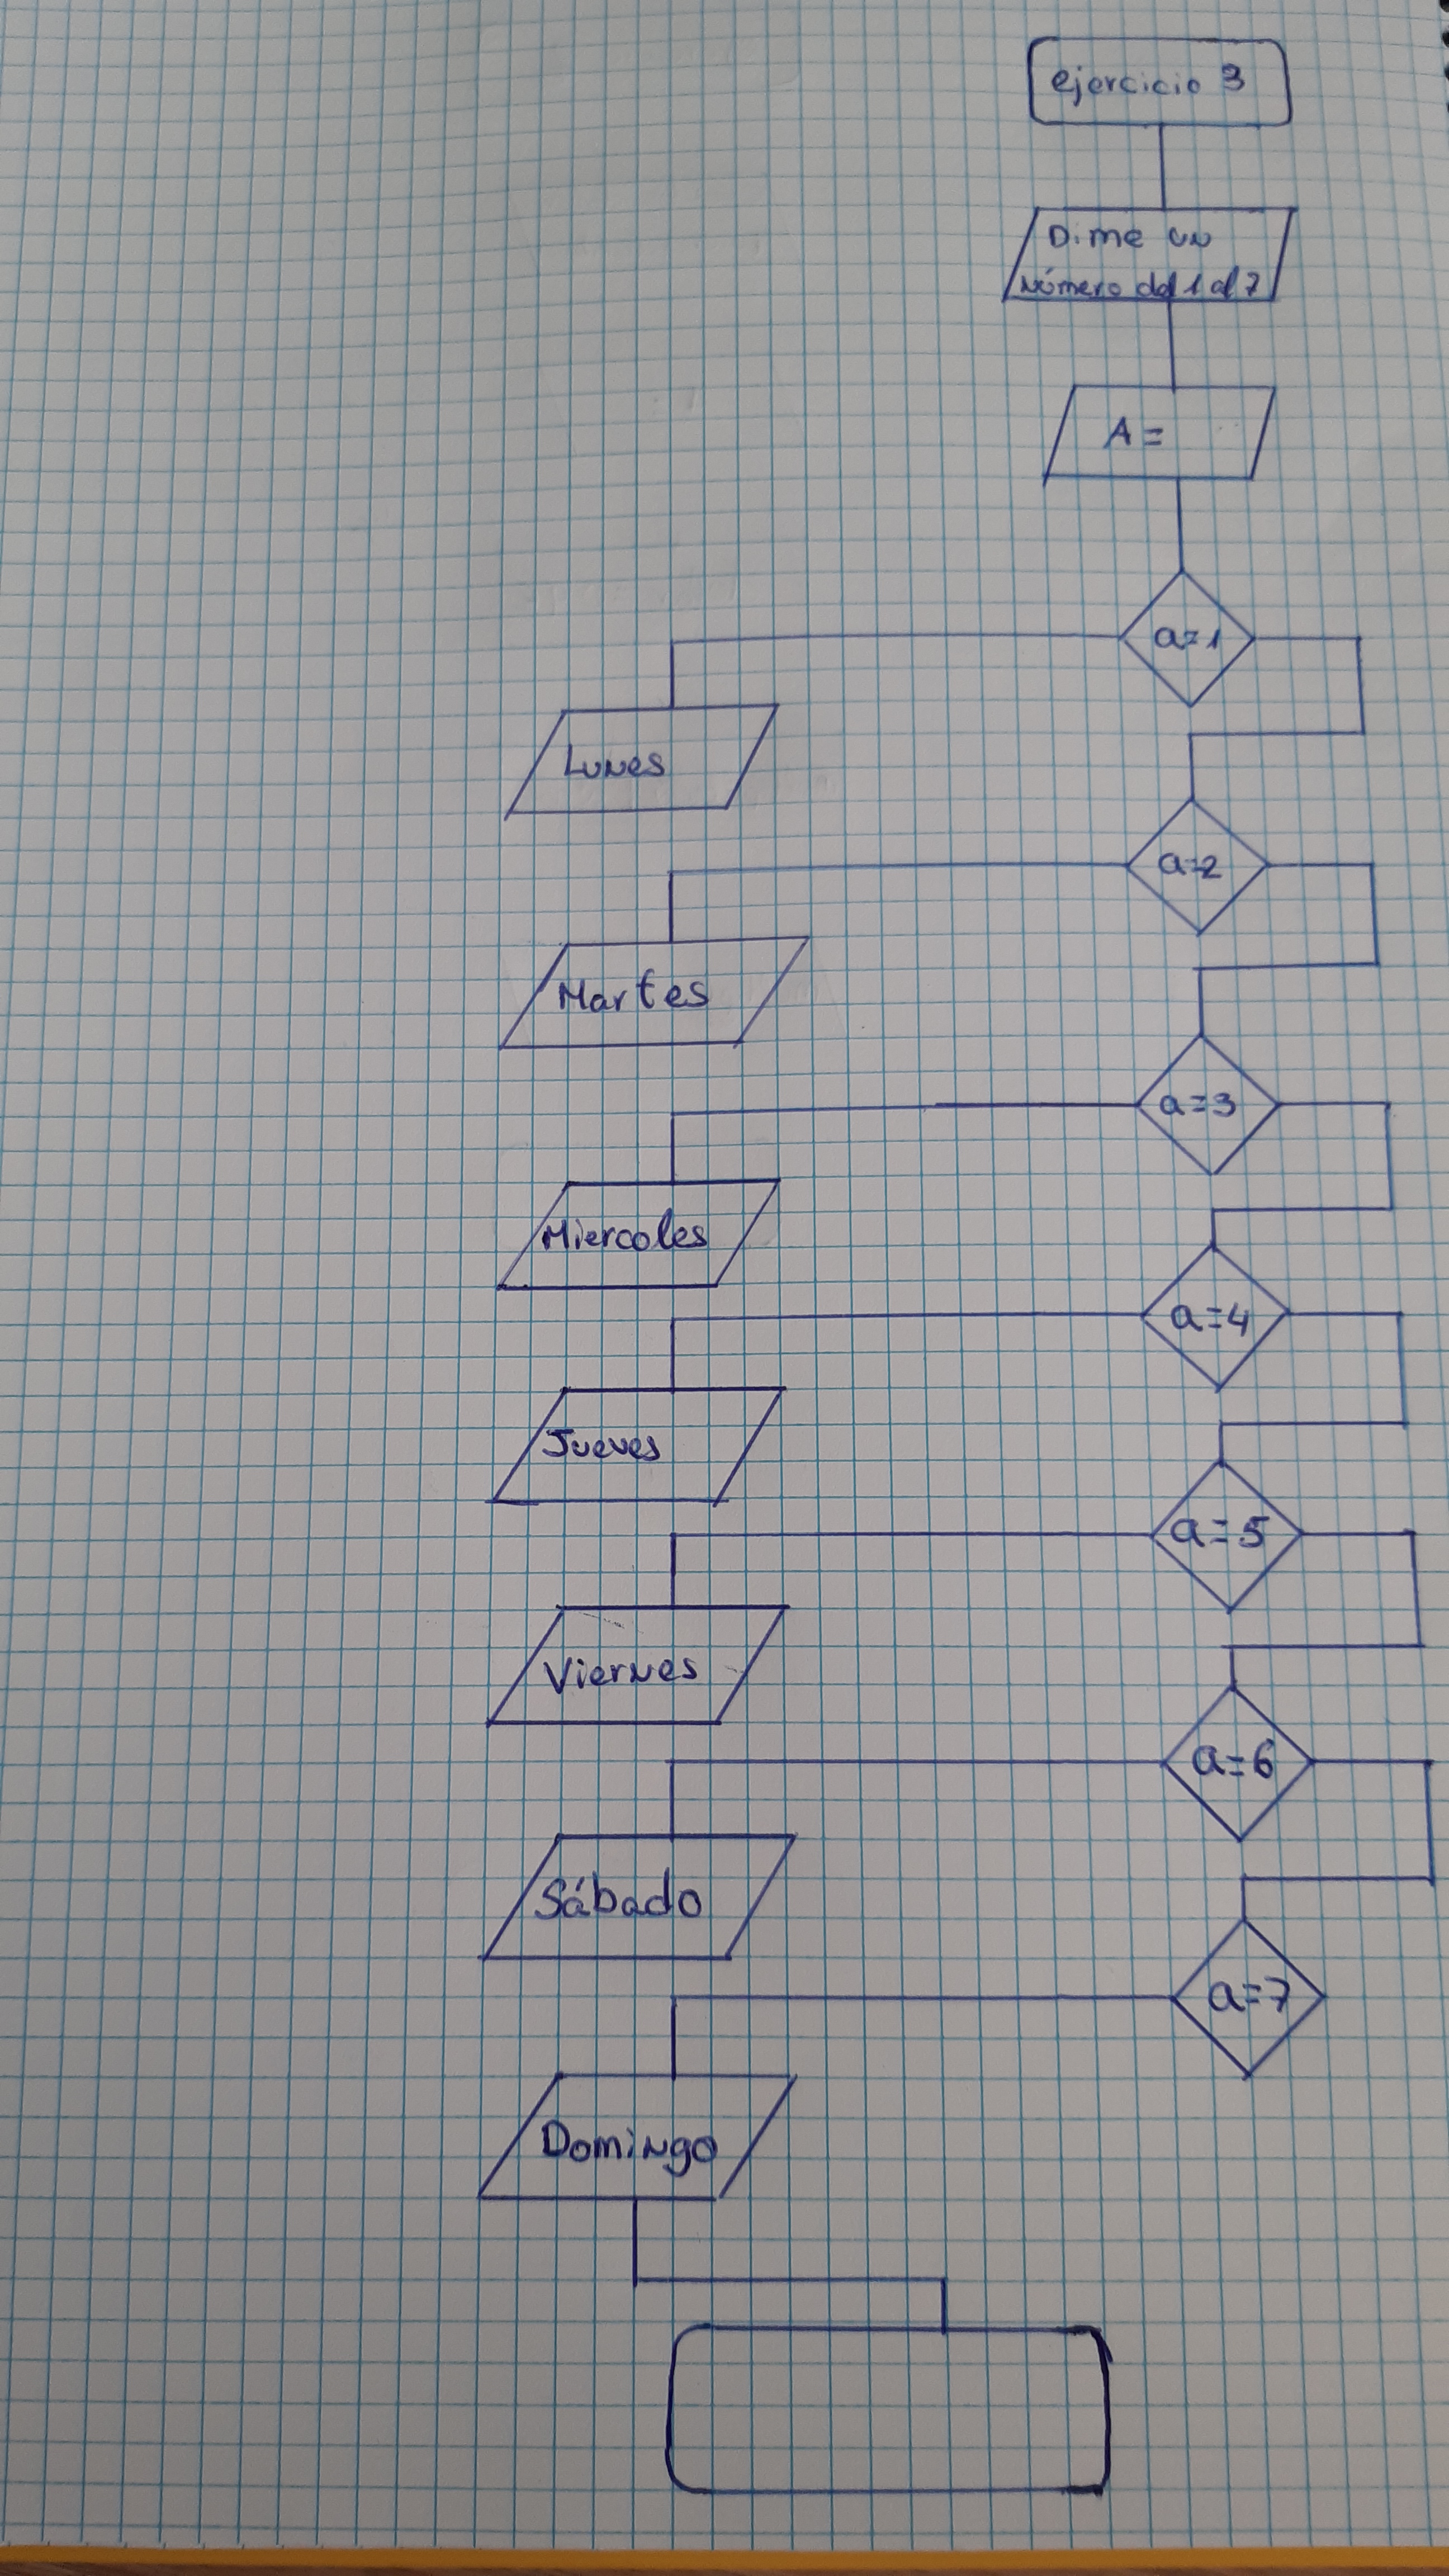 ejercicio 3
Dime un
número del 1 al 7
A =
a=1
Lunes
a=2
Martes
a=3
Miercoles
a=4
Jueves
a=5
Viernes
a=6
Sábado
a=7
Domingo